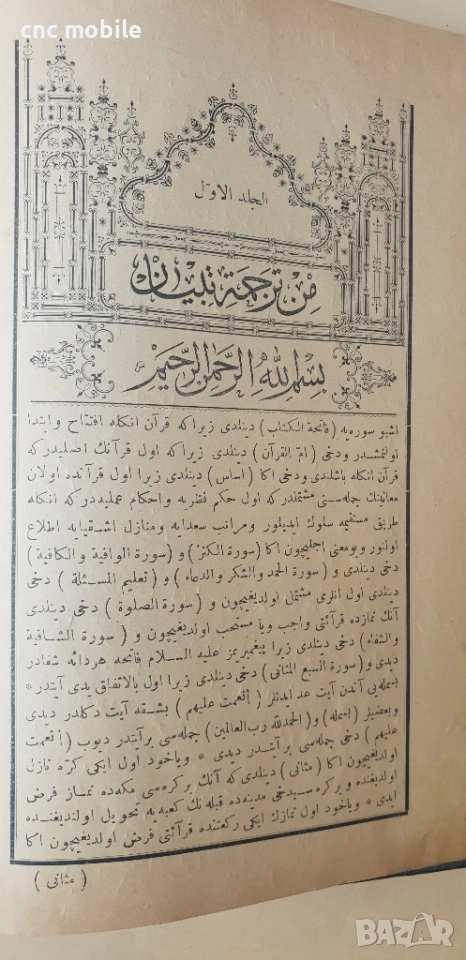 cnc mobile
الجلد الاوّل
من ترجمة تبيان
بسم الله الرحمن الرحيم
اشبو سوره‌يه ( فاتحة الكتاب ) دينلدى زيراكه قرآن انكله افتتاح و ابتدا
اولنمشدر ودخى ( امّ القرآن ) دينلدى زيراكه اول قرآنك اصليدركه
قرآن انكله باشلندى ودخى اكا ( اساس ) دينلدى زيرا اول قرآنده اولان
معالينك جمله‌سنى مشتملدركه اول حكم نظريه واحكام عمليه‌دركه انكله
طريق مستقيمه سلوك ايديلور ومراتب سعدايه ومنازل اشقيايه اطلاع
اولنور وبومعنى اجليچون اكا ( سورة الكنز ) و ( سورة الوافية والكافية )
دخى دينلدى و ( سورة الحمد والشكر والدعاء ) و ( تعليم المسئلة ) دخى
دينلدى اول انلرى مشتمل اولديغيچون و ( سورة الصلوة ) دخى دينلدى
آنك نمازده قرآئتى واجب ويا مستحب اولديغيچون و ( سورة الشافية
والشفاء ) دخى دينلدى زيرا پيغمبريمز عليه السلام فاتحه هردائه شفادر
ديدى و ( سورة السبع المثانى ) دخى دينلدى زيرا اول بالاتفاق يدى آيتدر *
بسمله‌يى آندن آيت عد ايدنلر ( أنعمت عليهم ) بشقه آيت دكلدر ديدى
وبعضيلر ( بسمله ) و ( الحمدلله رب العالمين ) جمله‌سى برآيتدر ديوب ( أنعمت
عليهم ) دخى جمله‌سى برآيتدر ديدى * وياخود اول ايكى كرّه نازل
اولديغيچون اكا ( مثانى ) دينلدى كه آنك بركره‌سى مكه‌ده نماز فرض
اولديغنده وبركره‌سيدخى مدينه‌ده قبله‌نك كعبه‌يه تحويل اولنديغنده
ايدى * وياخود اول نمازك ايكى ركعتنده قرآئتى فرض اولديغيچون اكا
( مثانى )
BAZAR